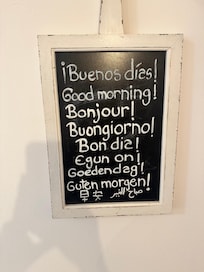 ¡Buenos días!
Good morning!
Bonjour!
Buongiorno!
Bon dia!
Egun on!
Goedendag!
Guten morgen!
早安 صباح الخير